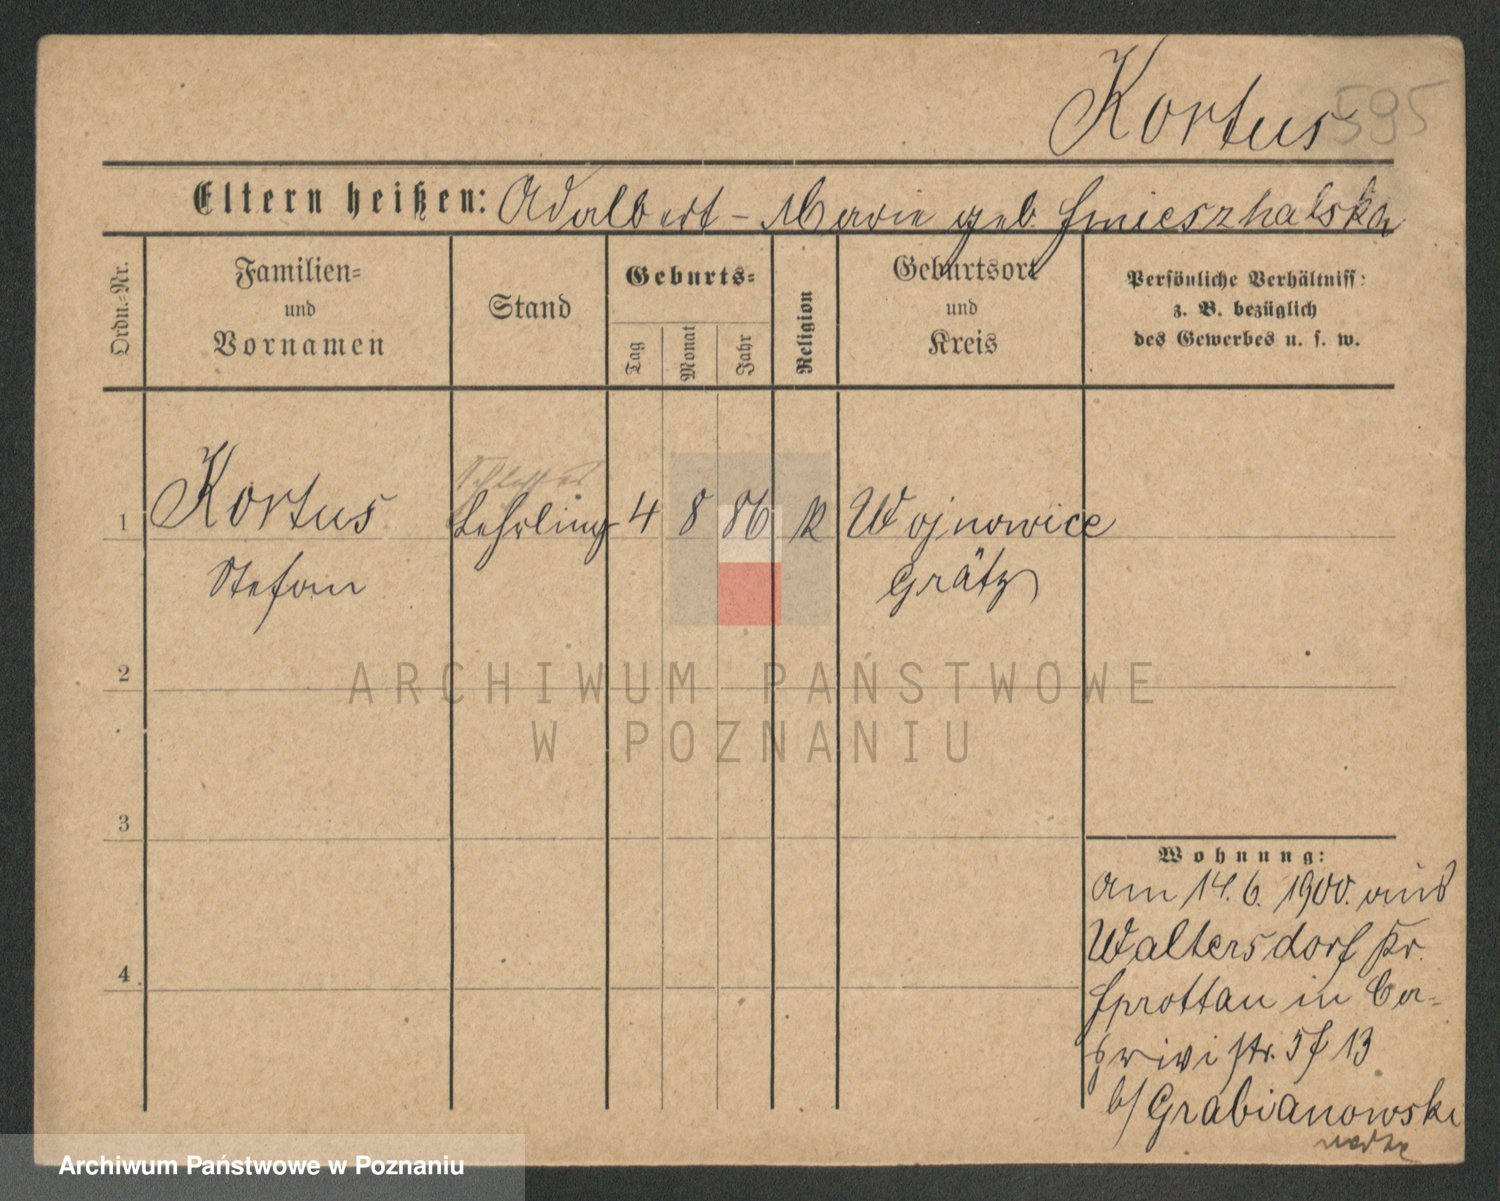 Kortus
595
Eltern heißen: Adalbert - Marie geb. Smieszhalska
Ordn.-Nr.
Familien-
und
Vornamen
Stand
Geburts-
Tag
Monat
Jahr
Religion
Geburtsort
und
Kreis
Persönliche Verhältniss:
z. B. bezüglich
des Gewerbes u. s. w.
Schlosser
1 Kortus Lehrling 4 8 86 k Wojnowice
Stefan Grätz
2
ARCHIWUM PAŃSTWOWE
W POZNANIU
3
Wohnung:
am 14. 6. 1900. aus
Waltersdorf Kr.
Sprottau in Ca-
privi str. 5 13
b/ Grabianowski
4
Archiwum Państwowe w Poznaniu